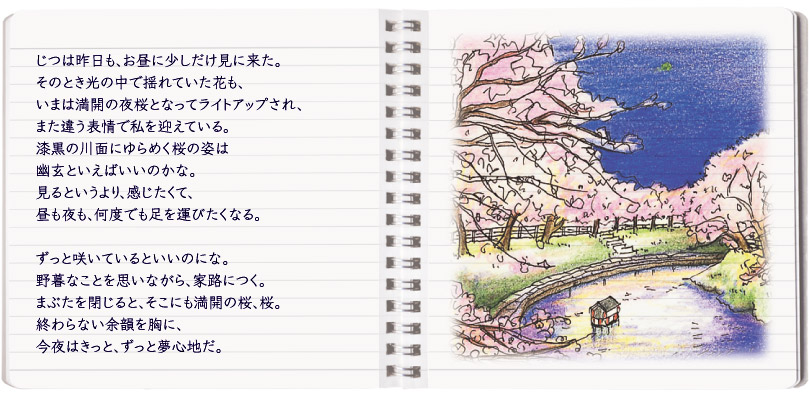 じつは昨日も、お昼に少しだけ見に来た。
そのとき光の中で揺れていた花も、
いまは満開の夜桜となってライトアップされ、
また違う表情で私を迎えている。
漆黒の川面にゆらめく桜の姿は
幽玄といえばいいのかな。
見るというより、感じたくて、
昼も夜も、何度でも足を運びたくなる。
ずっと咲いているといいのにな。
野暮なことを思いながら、家路につく。
まぶたを閉じると、そこにも満開の桜、桜。
終わらない余韻を胸に、
今夜はきっと、ずっと夢心地だ。